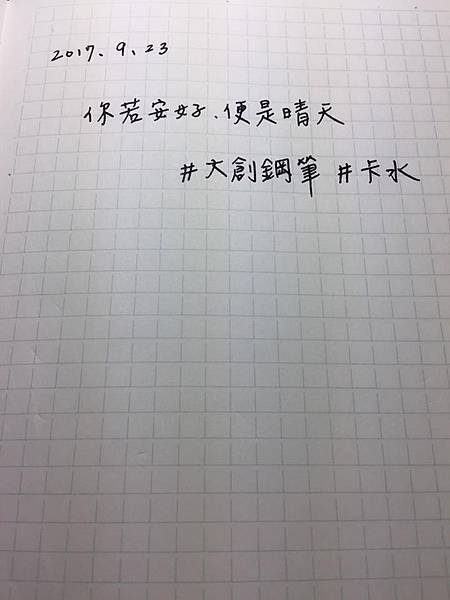 2017.9.23
你若安好、便是晴天
#大創鋼筆 #卡水